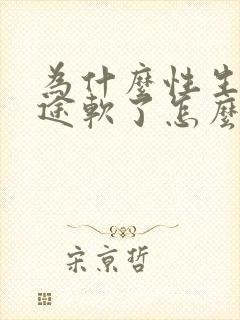 為什麼性生
途軟了怎麼
宋京哲